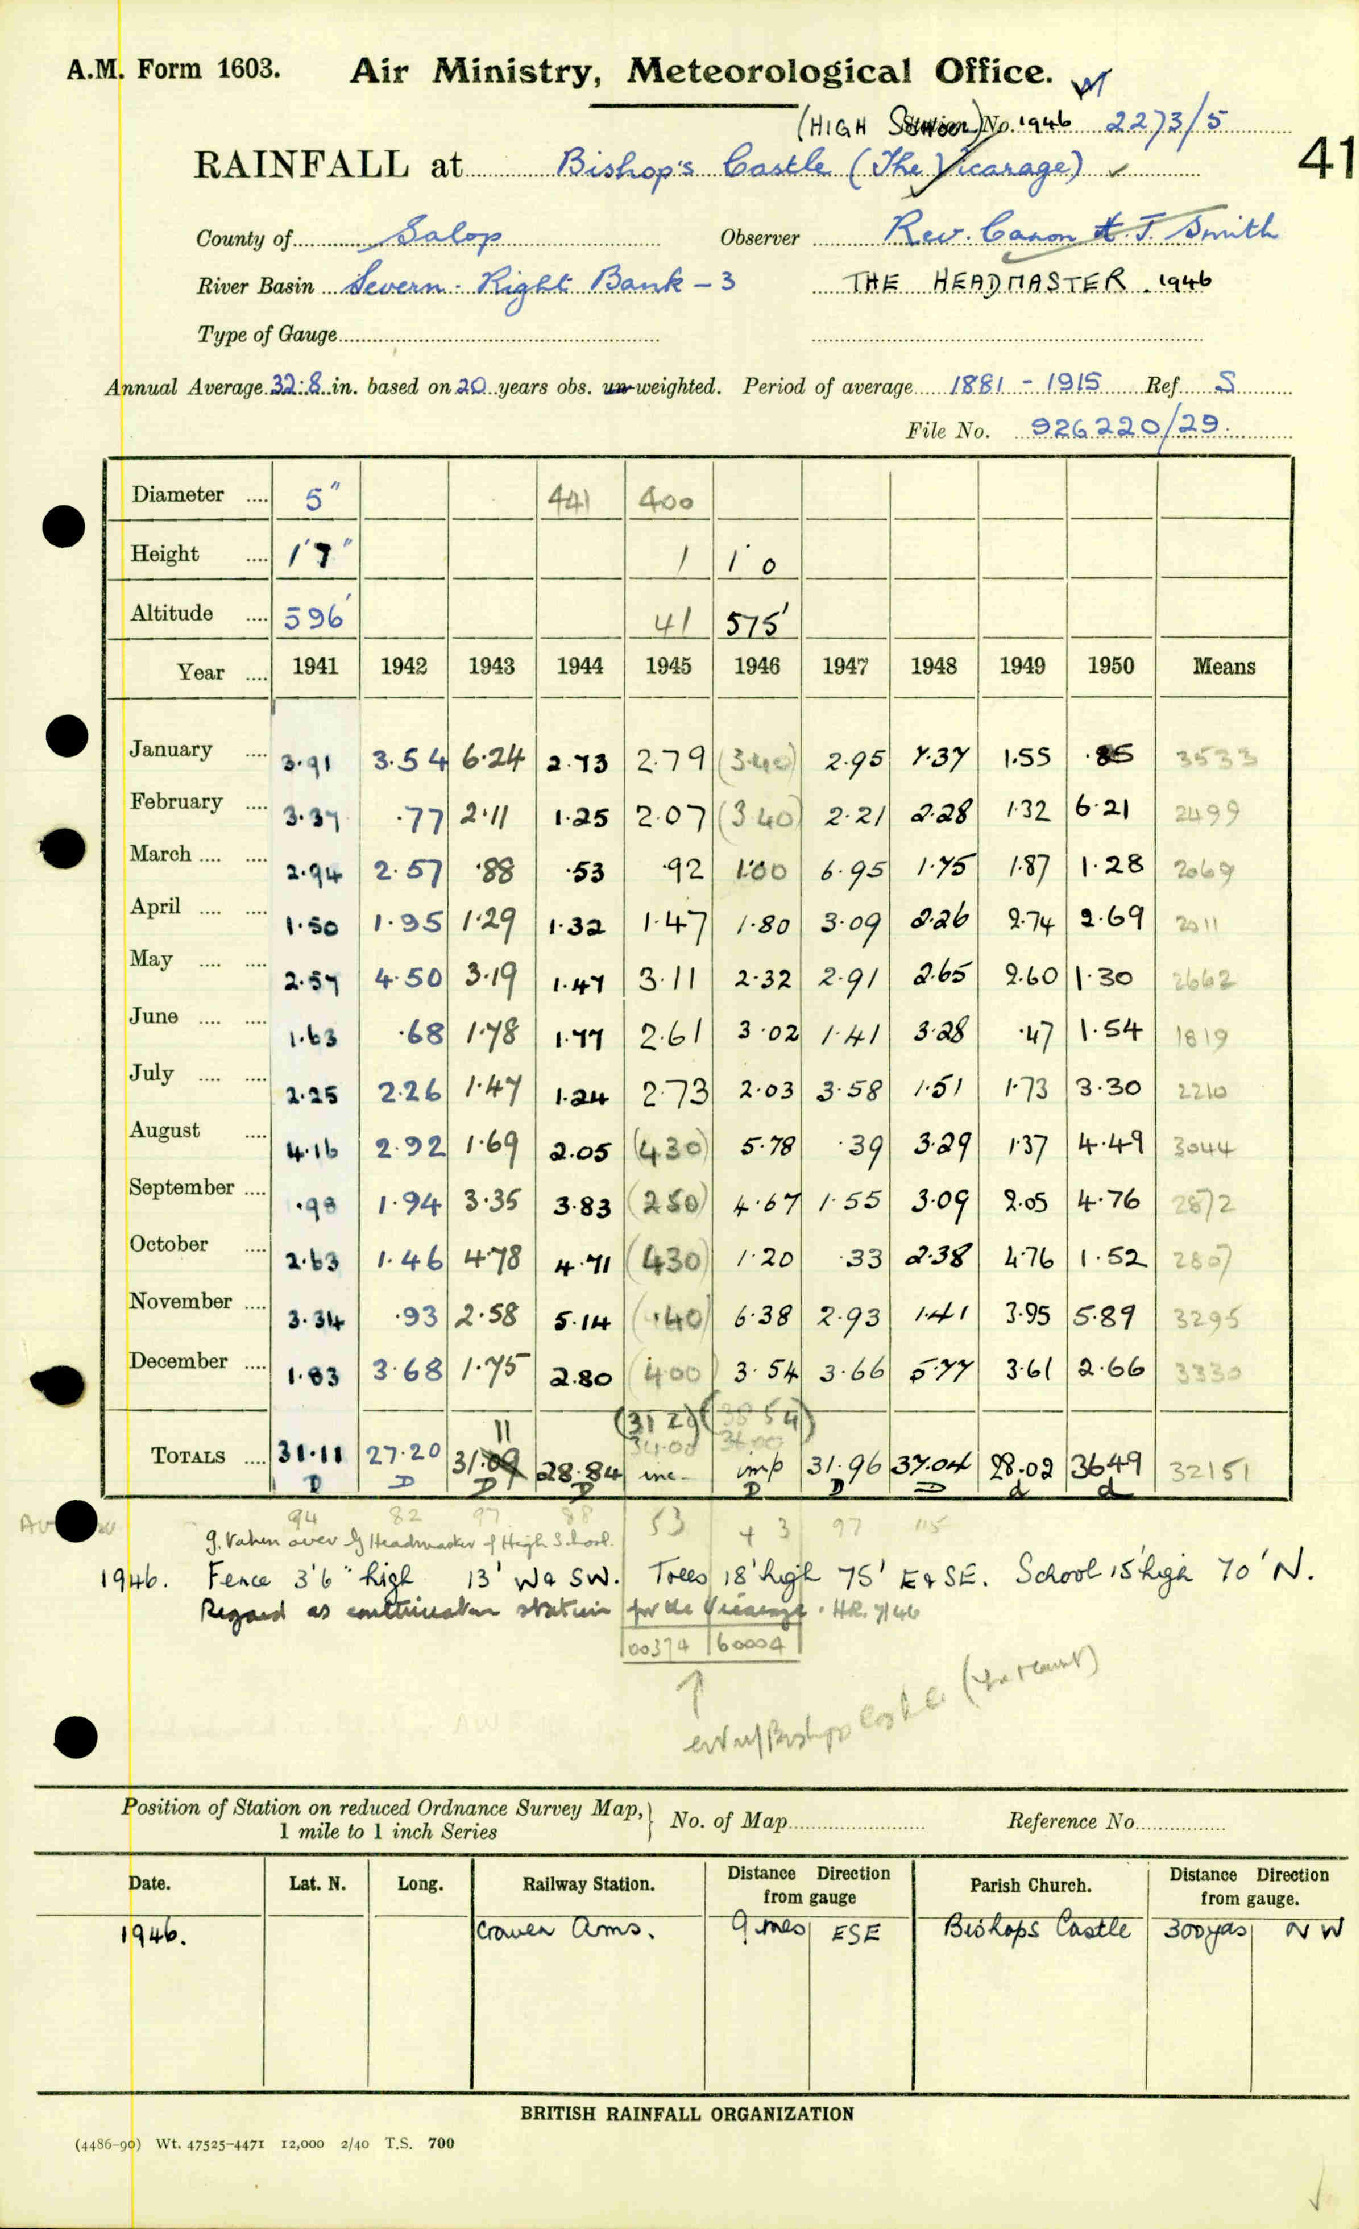 A.M. Form 1603. Air Ministry, Meteorological Office.
(HIGH SCHOOL) Station No. 1946 2273/5
RAINFALL at Bishop's Castle (The Vicarage) ✓ 41
County of Salop Observer Rev. Canon H. J. Smith
River Basin Severn - Right Bank - 3 THE HEADMASTER. 1946
Type of Gauge
Annual Average 32.8 in. based on 20 years obs. un-weighted. Period of average 1881 - 1915 Ref. S
File No. 926220/29.
Diameter 5" 441 400
Height 1'7" 1 1'0
Altitude 596' 41 575'
Year 1941 1942 1943 1944 1945 1946 1947 1948 1949 1950 Means
January 3.91 3.54 6.24 2.73 2.79 (3.40) 2.95 7.37 1.55 .85 3533
February 3.37 .77 2.11 1.25 2.07 (3.40) 2.21 2.28 1.32 6.21 2499
March 2.94 2.57 .88 .53 .92 1.00 6.95 1.75 1.87 1.28 2069
April 1.50 1.95 1.29 1.32 1.47 1.80 3.09 2.26 2.74 2.69 2011
May 2.57 4.50 3.19 1.47 3.11 2.32 2.91 2.65 2.60 1.30 2662
June 1.63 .68 1.78 1.77 2.61 3.02 1.41 3.28 .47 1.54 1819
July 2.25 2.26 1.47 1.24 2.73 2.03 3.58 1.51 1.73 3.30 2210
August 4.16 2.92 1.69 2.05 (430) 5.78 .39 3.29 1.37 4.49 3044
September .98 1.94 3.35 3.83 (250) 4.67 1.55 3.09 2.05 4.76 2872
October 2.63 1.46 4.78 4.71 (430) 1.20 .33 2.38 4.76 1.52 2807
November 3.34 .93 2.58 5.14 (.40) 6.38 2.93 1.41 3.95 5.89 3295
December 1.83 3.68 1.75 2.80 (400) 3.54 3.66 5.77 3.61 2.66 3330
11 (31 20) (38 54)
34.00 36.00
TOTALS 31.11 27.20 31.09 28.84 inc. imp 31.96 37.04 28.02 36.49 32151
D D D D D D D d d
94 82 97 88 53 43 97 115
g. taken over by Headmaster of High School.
1946. Fence 3'6" high 13' W & SW. Trees 18' high 75' E & SE. School 15' high 70' N.
Regard as continuation station for the Vicarage. HR. 7/46
00374 60004
↑
Bishops Castle
Position of Station on reduced Ordnance Survey Map,} No. of Map Reference No.
1 mile to 1 inch Series
Date. Lat. N. Long. Railway Station. Distance Direction from gauge Parish Church. Distance Direction from gauge.
1946. Craven Arms. 9 mls ESE Bishops Castle 300 yds NW
BRITISH RAINFALL ORGANIZATION
(4486-90) Wt. 47525-4471 12,000 2/40 T.S. 700